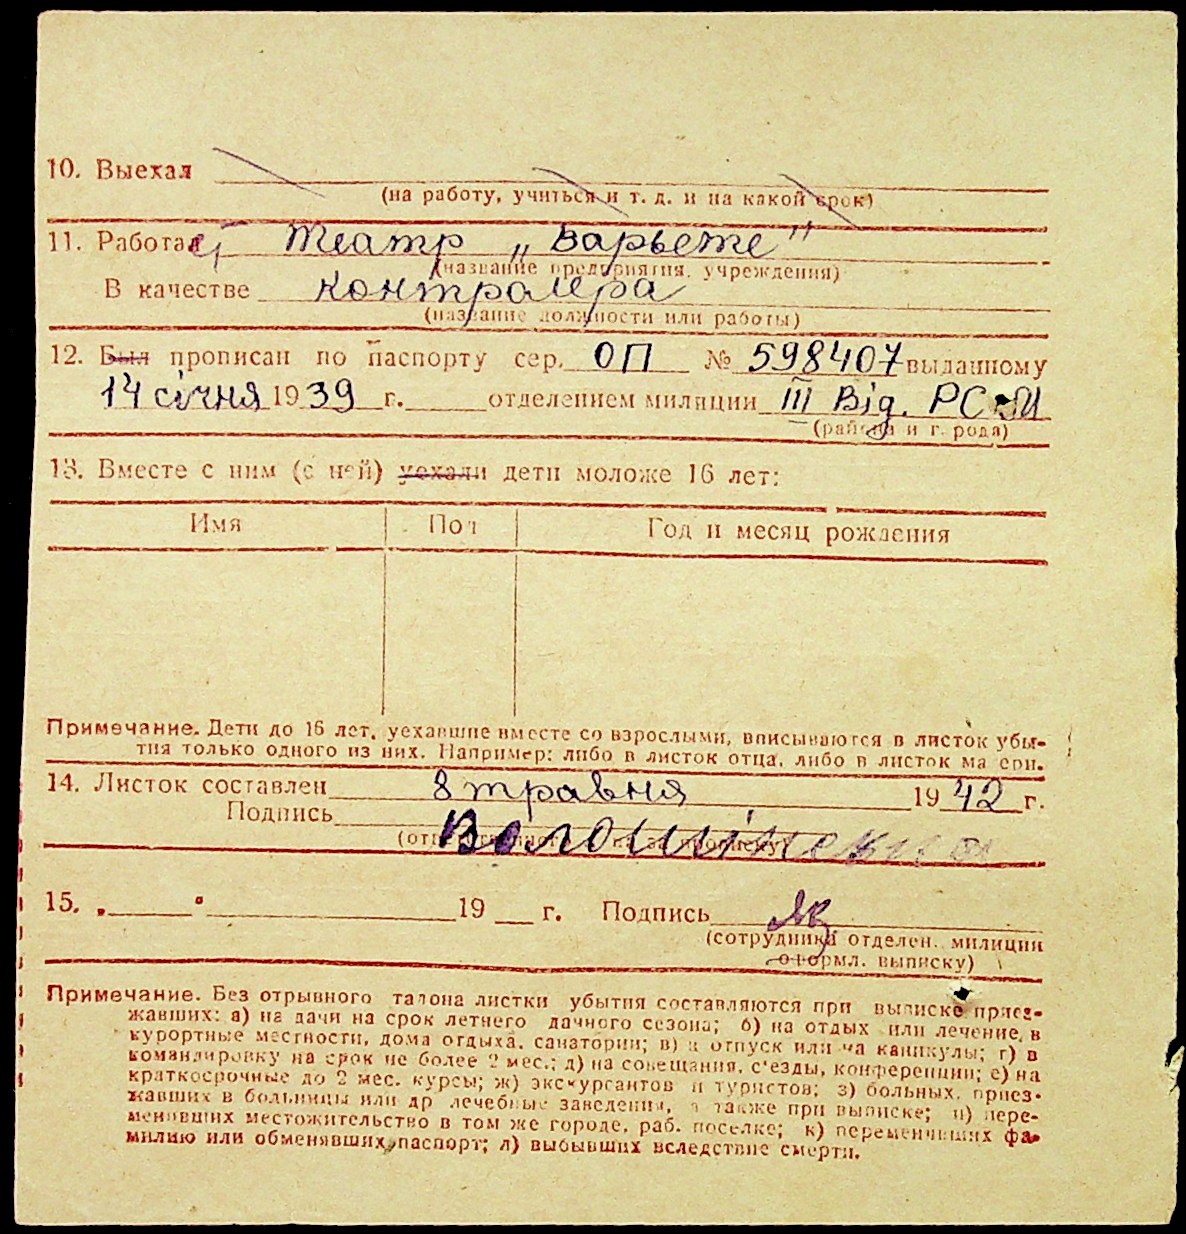 10. Выехал
(на работу, учиться и т. д. и на какой срок)
11. Работа театр „Варьете"
(название предприятия, учреждения)
В качестве контролера
(название должности или работы)
12. Был прописан по паспорту сер. ОП № 598407 выданному
14 січня 1939 г. отделением милиции III Від. РС
(района и города)
13. Вместе с ним (с ней) уехали дети моложе 16 лет:
Имя Пол Год и месяц рождения
Примечание. Дети до 16 лет, уехавшие вместе со взрослыми, вписываются в листок убы-
тия только одного из них. Например: либо в листок отца, либо в листок матери.
14. Листок составлен 8 травня 1942 г.
Подпись Волошинский
15. „ " 19 г. Подпись
(сотрудника отделен. милиции
оформл. выписку)
Примечание. Без отрывного талона листки убытия составляются при выписке приез-
жавших: а) на дачи на срок летнего дачного сезона; б) на отдых или лечение, в
курортные местности, дома отдыха, санатории; в) в отпуск или на каникулы; г) в
командировку на срок не более 2 мес.; д) на совещания, с'езды, конференции; е) на
краткосрочные до 2 мес. курсы; ж) экскурсантов и туристов; з) больных, приез-
жавших в больницы или др лечебные заведения, а также при выписке; и) пере-
менивших местожительство в том же городе, раб. поселке; к) переменивших фа-
милию или обменявших паспорт; л) выбывших вследствие смерти.